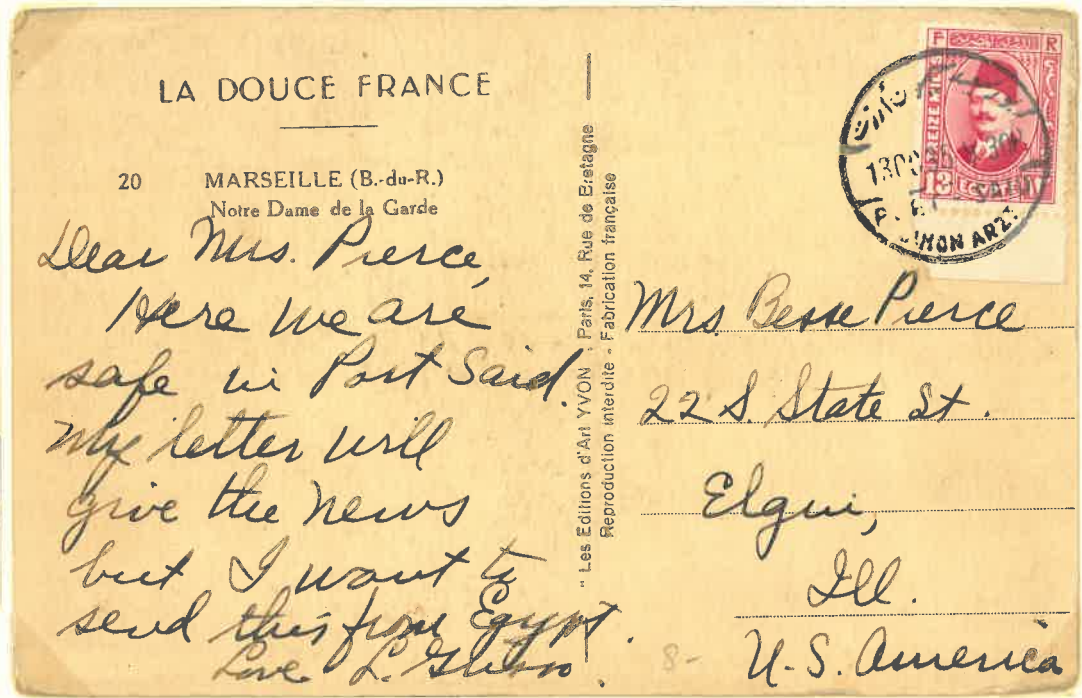 LA DOUCE FRANCE
20 MARSEILLE (B.-du-R.)
Notre Dame de la Garde
Dear Mrs. Pierce,
Here we are
safe in Port Said.
My letter will
give the news
but I want to
send this from Egypt.
Love L.
" Les Editions d'Art YVON " Paris, 14, Rue de Bretagne
Reproduction interdite - Fabrication française
F R
13
SIMON ARZT
Mrs. Besse Pierce
22 S. State St.
Elgin,
Ill.
U.S. America
8-